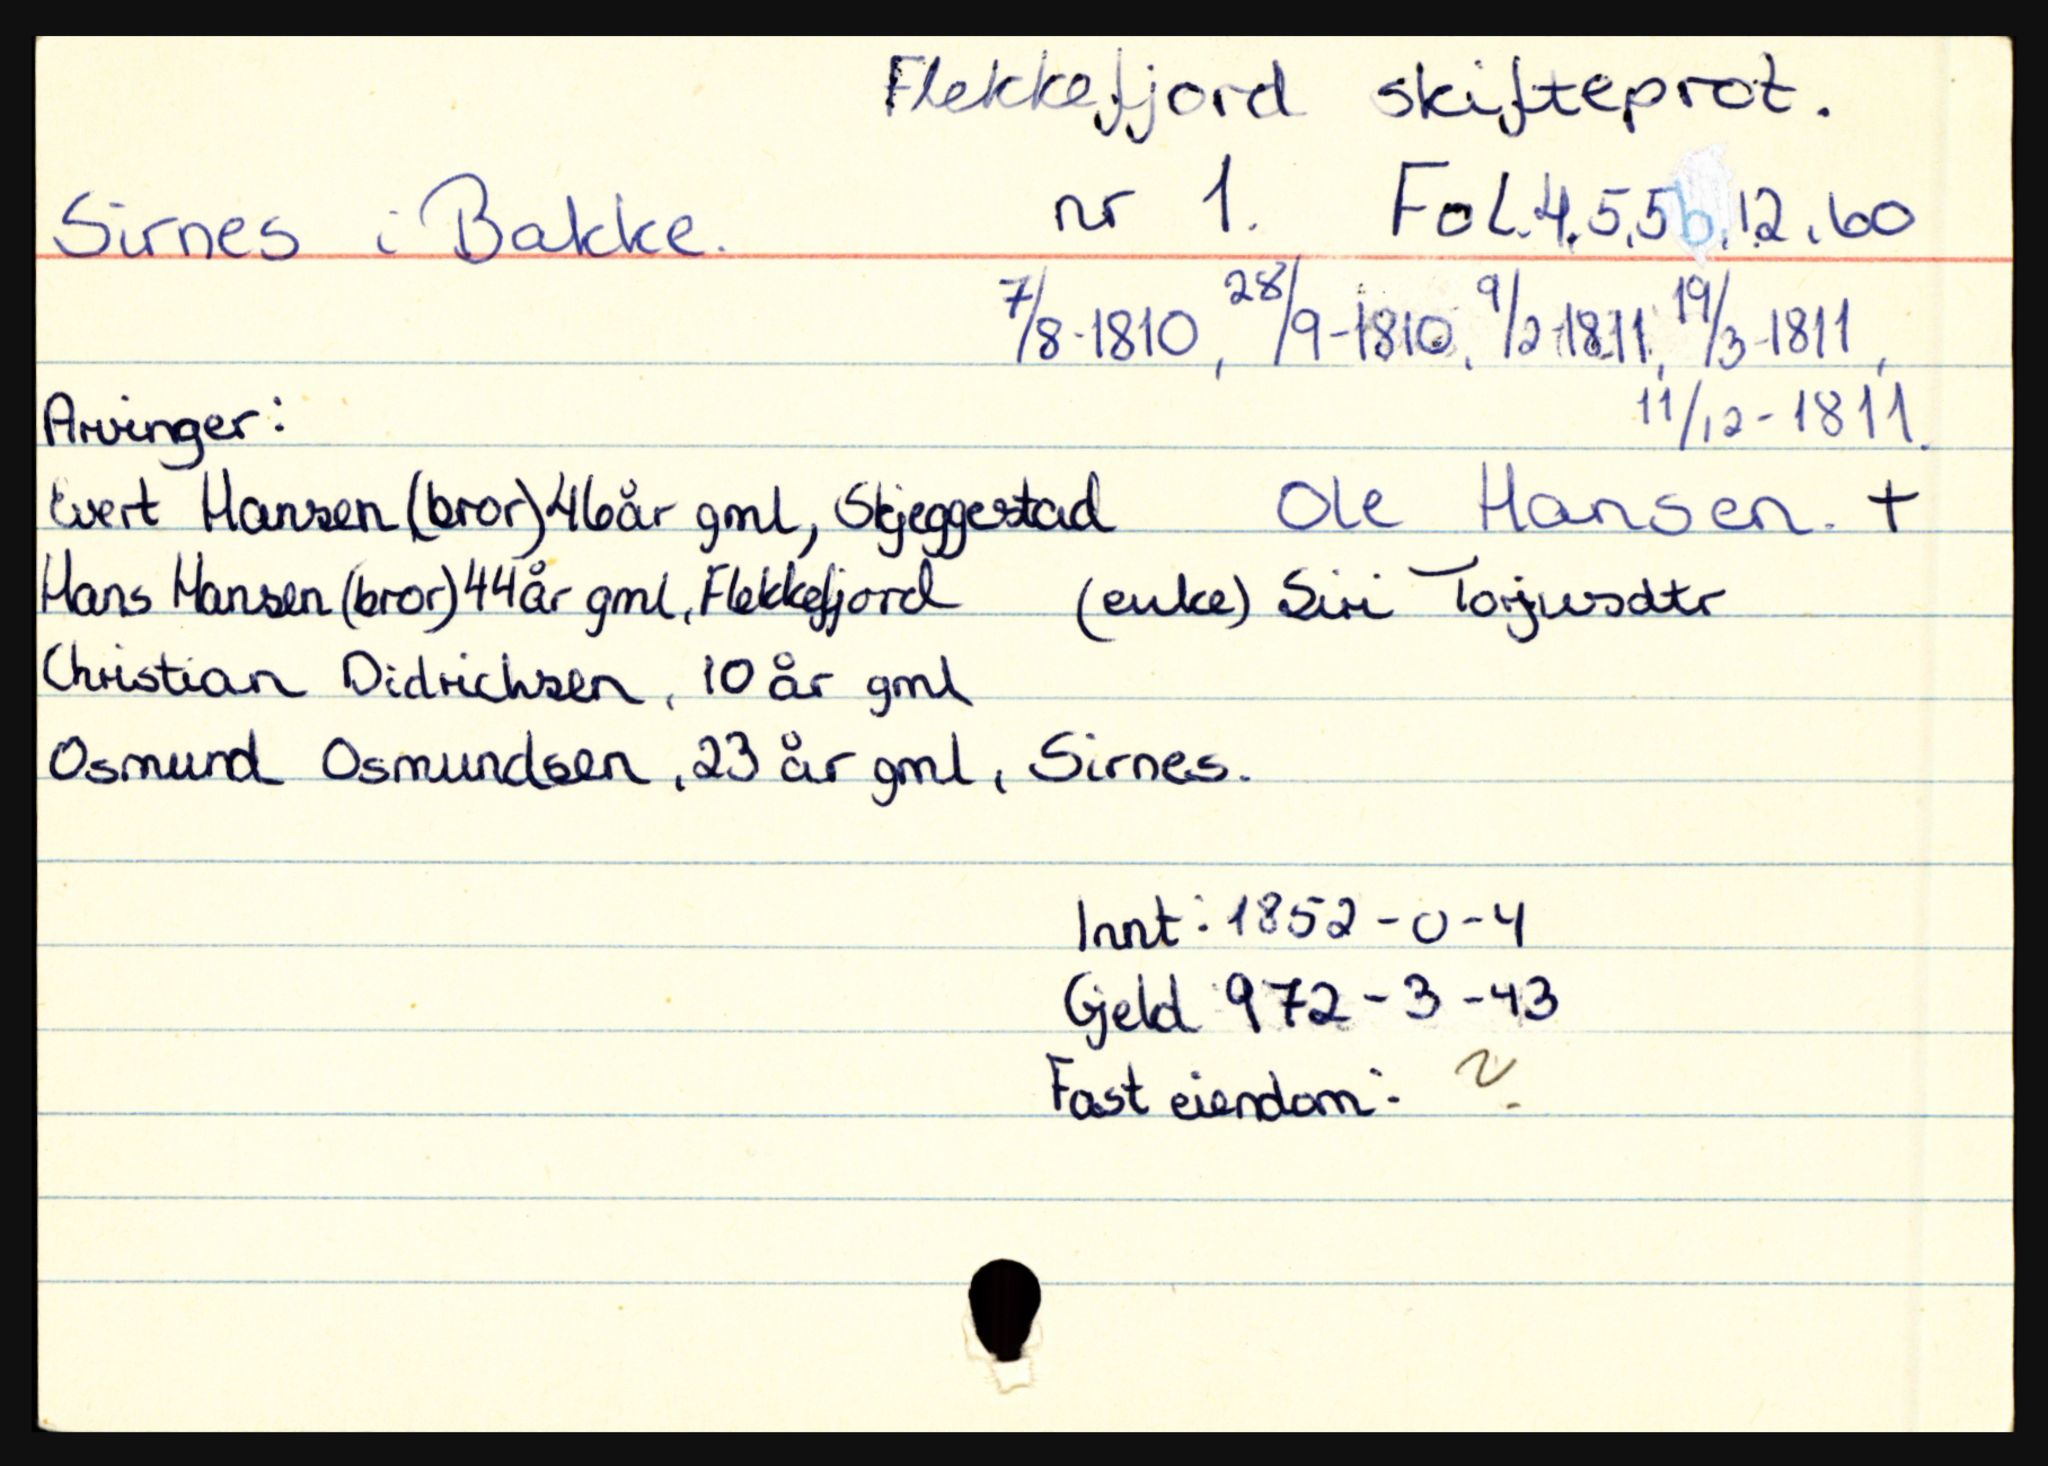 Flekkefjord skifteprot.
Sirnes i Bakke. nr 1. Fol.4,5,5b,12,60
7/8-1810, 28/9-1810, 9/2-1811, 19/3-1811,
11/12-1811.
Arvinger:
Evert Hansen (bror) 46år gml, Skjeggestad Ole Hansen. +
Hans Hansen (bror) 44år gml, Flekkefjord (enke) Siri Torjusdtr
Christian Didrichsen, 10 år gml
Osmund Osmundsen, 23 år gml, Sirnes.
Innt: 1852-0-4
Gjeld 972-3-43
Fast eiendom: